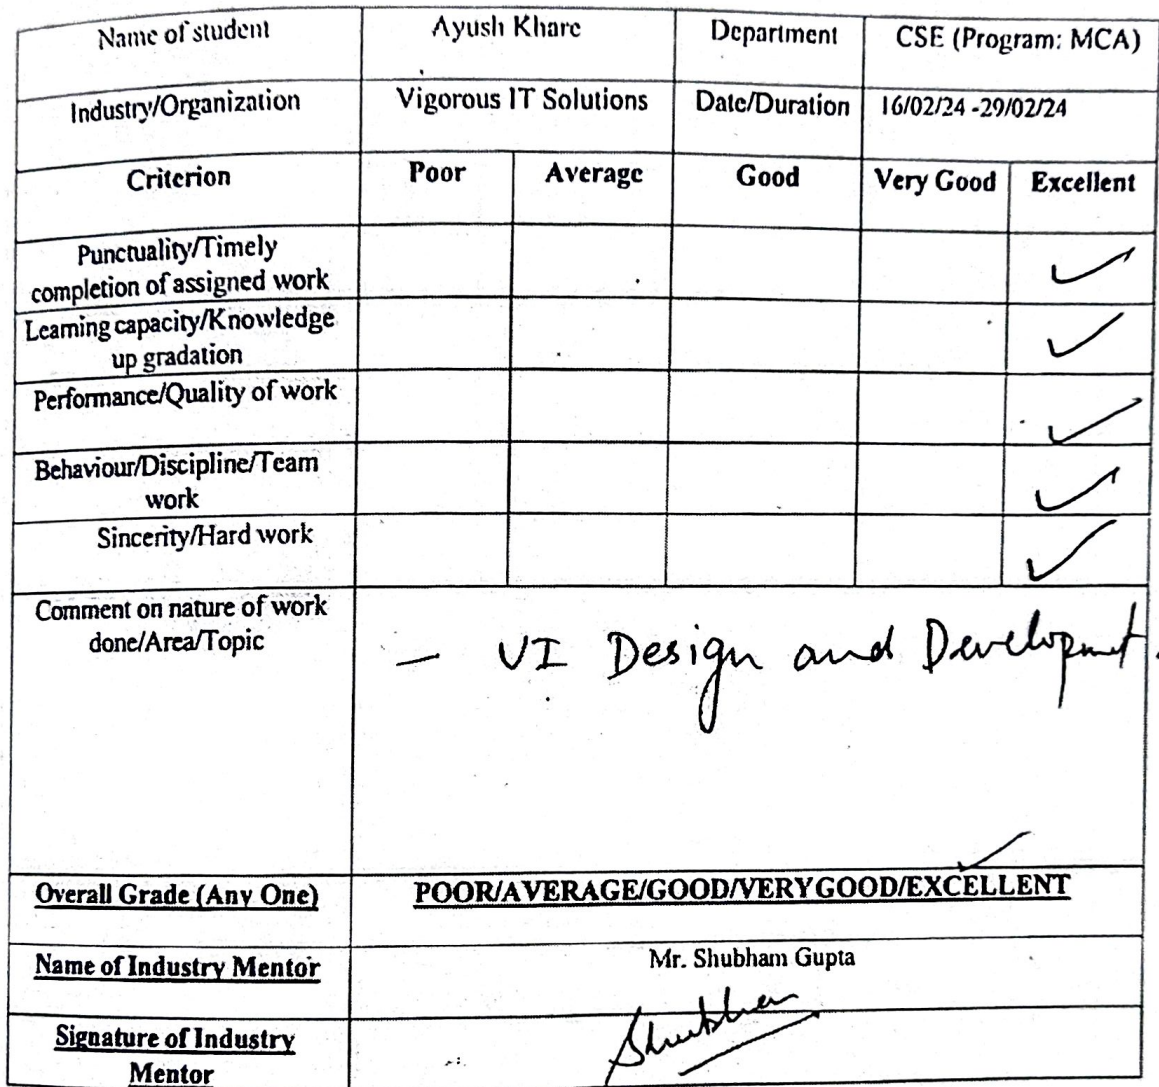 Name of student Ayush Khare Department CSE (Program: MCA)
Industry/Organization Vigorous IT Solutions Date/Duration 16/02/24 -29/02/24
Criterion Poor Average Good Very Good Excellent
Punctuality/Timely
completion of assigned work ✓
Learning capacity/Knowledge
up gradation ✓
Performance/Quality of work ✓
Behaviour/Discipline/Team
work ✓
Sincerity/Hard work ✓
Comment on nature of work
done/Area/Topic
- UI Design and Development.
✓
Overall Grade (Any One) POOR/AVERAGE/GOOD/VERY GOOD/EXCELLENT
Name of Industry Mentor Mr. Shubham Gupta
Signature of Industry
Mentor
Shubham